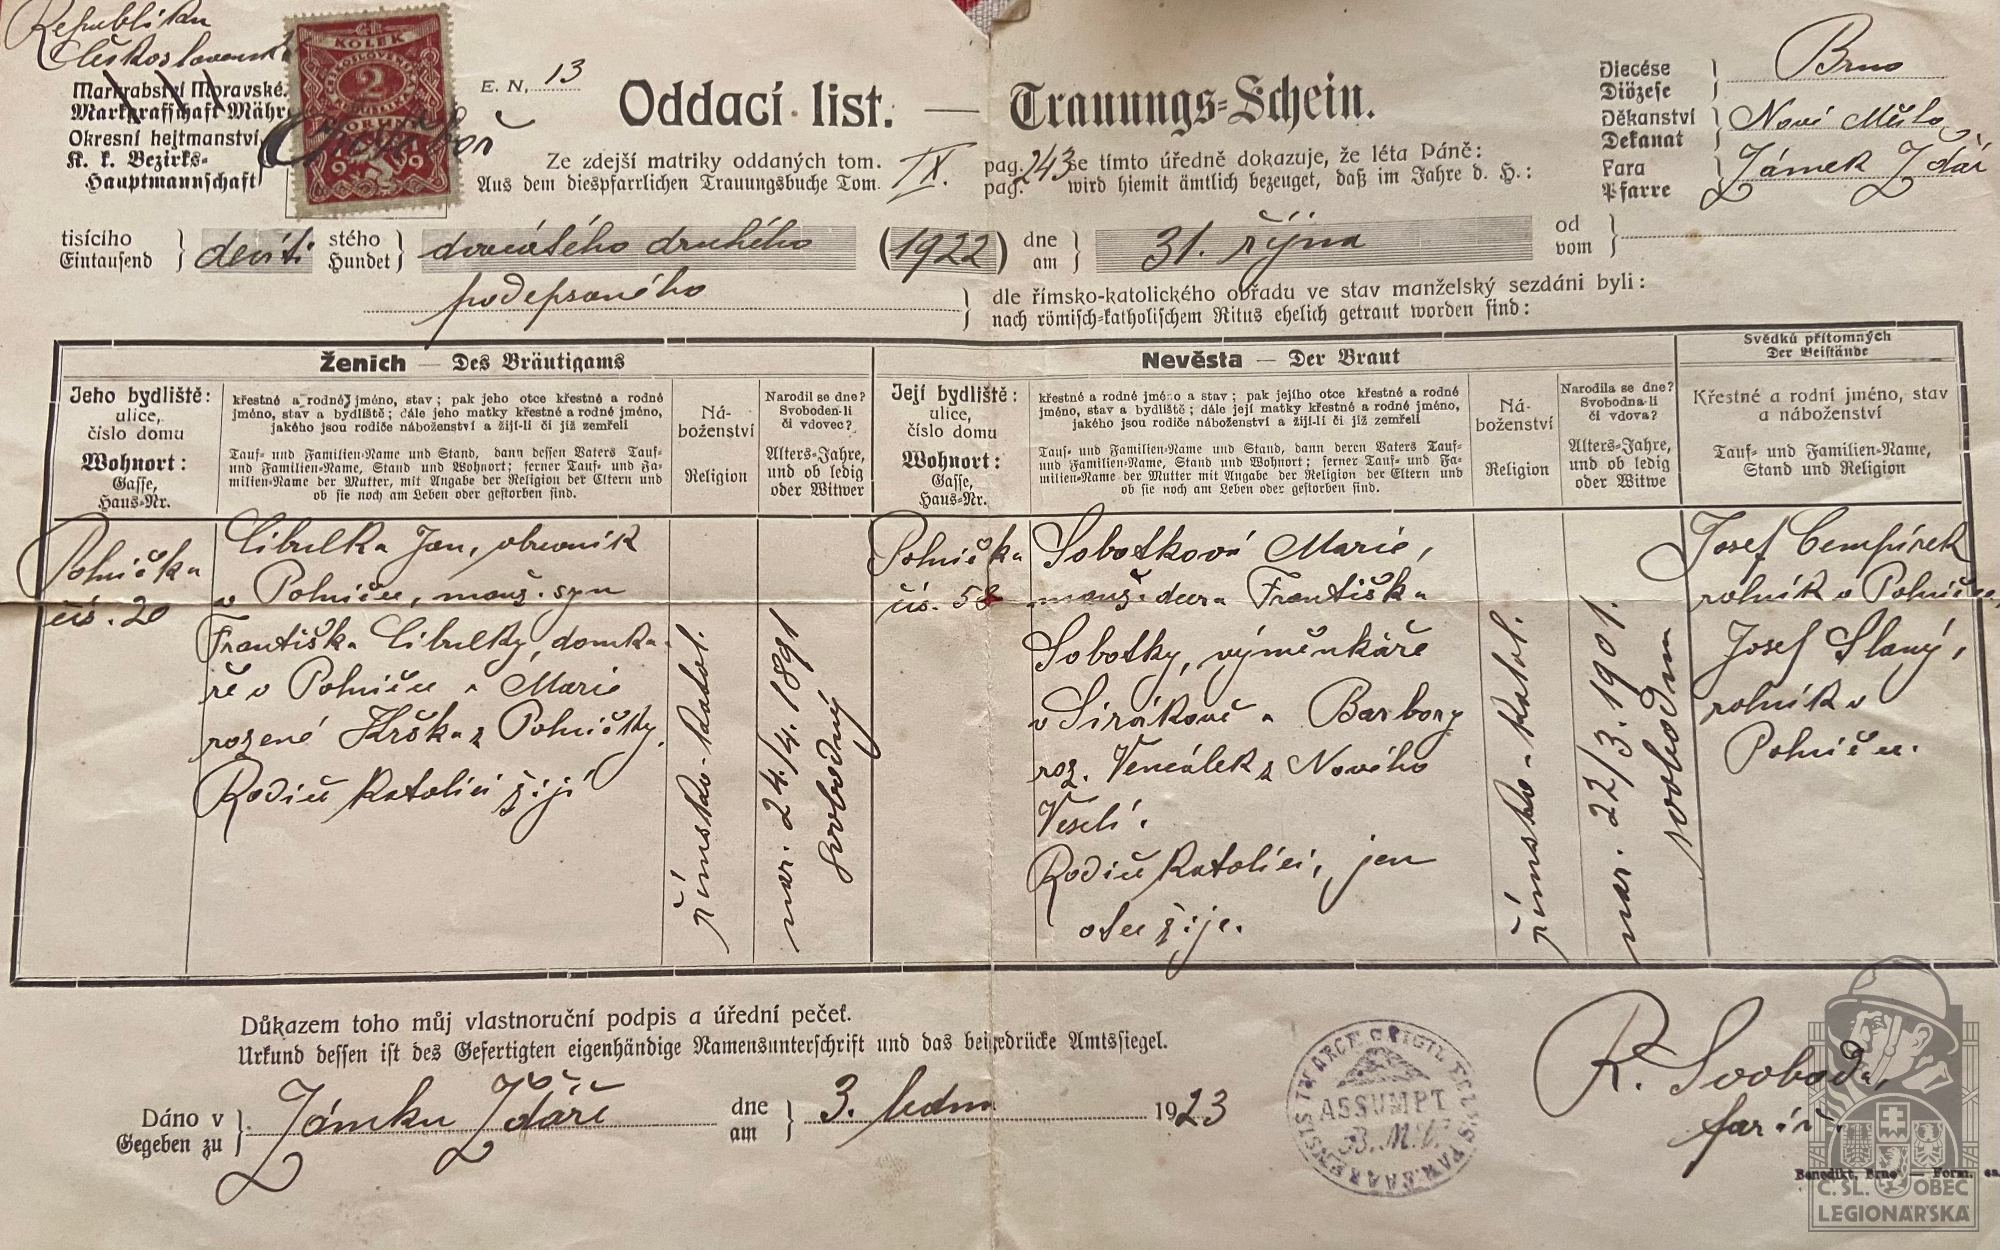 Republika
Československá
Markrabství Moravské.
Markgrafschaft Mähr
Okresní hejtmanství
K. k. Bezirks-
Hauptmannschaft
Chotěboř
KOLEK
2
1919
E. N. 13
Oddací list. — Trauungs-Schein.
Ze zdejší matriky oddaných tom. IX. pag. 243 se tímto úředně dokazuje, že léta Páně:
Aus dem diespfarrlichen Trauungsbuche Tom. pag. wird hiemit ämtlich bezeuget, daß im Jahre d. H.:
Diecése
Diözese
Brno
Děkanství
Dekanat
Nové Město
Fara
Pfarre
Zámek Žďár
tisícího
Eintausend
devíti
stého
Hundet
dvacátého druhého (1922)
dne
am
31. října
od
vom
podepsaného
dle římsko-katolického obřadu ve stav manželský sezdáni byli:
nach römisch-katholischem Ritus ehelich getraut worden sind:
Ženich — Des Bräutigams
Jeho bydliště:
ulice,
číslo domu
Wohnort:
Gasse,
Haus-Nr.
křestné a rodné jméno, stav; pak jeho otce křestné a rodné
jméno, stav a bydliště; dále jeho matky křestné a rodné jméno,
jakého jsou rodiče náboženství a žijí-li či již zemřeli
Tauf- und Familien-Name und Stand, dann dessen Vaters Tauf-
und Familien-Name, Stand und Wohnort; ferner Tauf- und Fa-
milien-Name der Mutter, mit Angabe der Religion der Eltern und
ob sie noch am Leben oder gestorben sind.
Ná-
boženství
Religion
Narodil se dne?
Svoboden-li
či vdovec?
Alters-Jahre,
und ob ledig
oder Witwer
Nevěsta — Der Braut
Její bydliště:
ulice,
číslo domu
Wohnort:
Gasse,
Haus-Nr.
křestné a rodné jméno a stav; pak jejího otce křestné a rodné
jméno, stav a bydliště; dále její matky křestné a rodné jméno,
jakého jsou rodiče náboženství a žijí-li či již zemřeli
Tauf- und Familien-Name und Stand, dann deren Vaters Tauf-
und Familien-Name, Stand und Wohnort; ferner Tauf- und Fa-
milien-Name der Mutter mit Angabe der Religion der Eltern und
ob sie noch am Leben oder gestorben sind.
Ná-
boženství
Religion
Narodila se dne?
Svobodna-li
či vdova?
Alters-Jahre,
und ob ledig
oder Witwe
Svědků přítomných
Der Beistände
Křestné a rodní jméno, stav
a náboženství
Tauf- und Familien-Name,
Stand und Religion
Polnička
čís. 20
Cibulka Jan, obuvník
v Polničce, manž. syn
Františka Cibulky, domka-
ře v Polničce a Marie
rozené Krška z Polničky.
Rodiče katolíci žijí
římsko-katol.
nar. 24./4. 1891
svobodný
Polnička
čís. 58
Sobotková Marie,
manž. dcera Františka
Sobotky, výměnkáře
v Sirákově a Barbory
roz. Vencálek z Nového
Veselí.
Rodiče katolíci, jen
otec žije.
římsko-katol.
nar. 22/3. 1901.
svobodna
Josef Cempírek
rolník v Polničce,
Josef Slaný,
rolník v
Polničce.
Důkazem toho můj vlastnoruční podpis a úřední pečeť.
Urkund dessen ist des Gefertigten eigenhändige Namensunterschrift und das beigedrückte Amtssiegel.
Dáno v
Gegeben zu
Zámku Žďáře
dne
am
3. ledna 1923
ASSUMPT
B.M.V.
R. Svoboda,
farář.
Benedikt, Brno — Form.
Č. SL. OBEC
LEGIONÁŘSKÁ